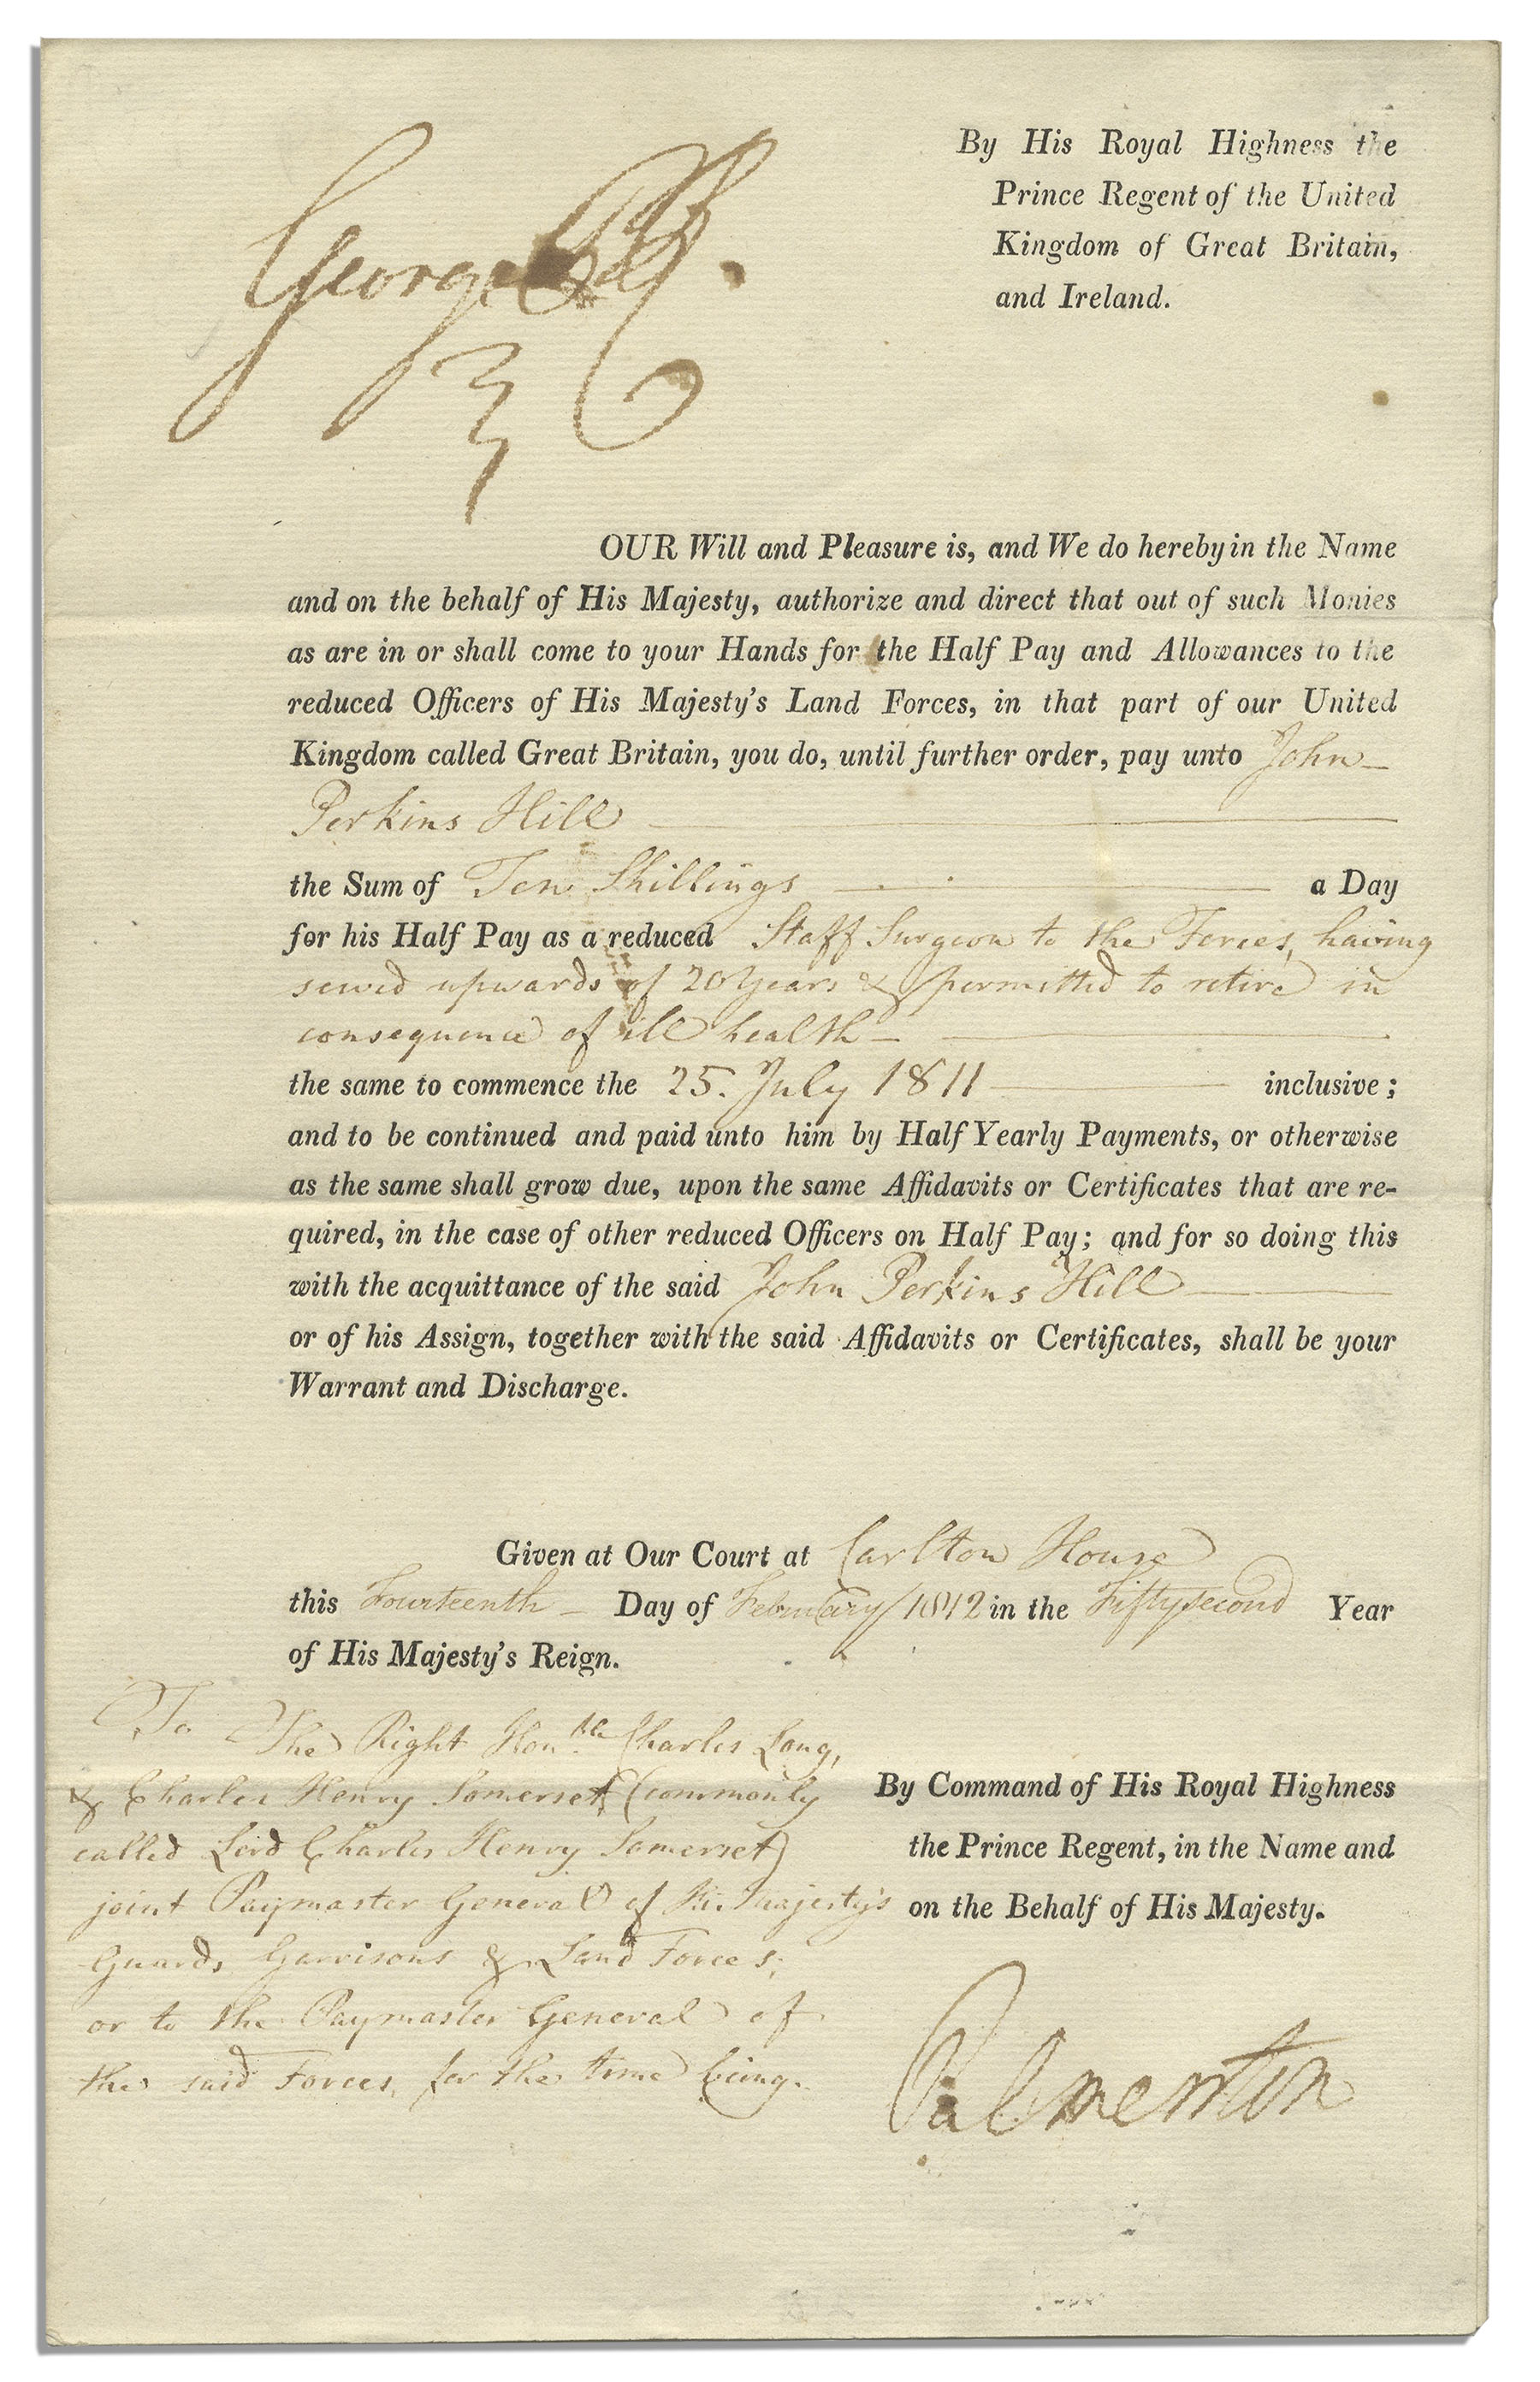 George P R
By His Royal Highness the
Prince Regent of the United
Kingdom of Great Britain,
and Ireland.
OUR Will and Pleasure is, and We do hereby in the Name
and on the behalf of His Majesty, authorize and direct that out of such Monies
as are in or shall come to your Hands for the Half Pay and Allowances to the
reduced Officers of His Majesty's Land Forces, in that part of our United
Kingdom called Great Britain, you do, until further order, pay unto John
Perkins Hill
the Sum of Ten Shillings a Day
for his Half Pay as a reduced Staff Surgeon to the Forces, having
served upwards of 20 Years & permitted to retire in
consequence of ill health
the same to commence the 25. July 1811 inclusive;
and to be continued and paid unto him by Half Yearly Payments, or otherwise
as the same shall grow due, upon the same Affidavits or Certificates that are re-
quired, in the case of other reduced Officers on Half Pay; and for so doing this
with the acquittance of the said John Perkins Hill
or of his Assign, together with the said Affidavits or Certificates, shall be your
Warrant and Discharge.
Given at Our Court at Carlton House
this Fourteenth Day of February 1812 in the Fifty second Year
of His Majesty's Reign.
To The Right Honble. Charles Long,
& Charles Henry Somerset, (commonly
called Lord Charles Henry Somerset)
joint Paymaster General of His Majesty's
Guards, Garrisons & Land Forces;
or to the Paymaster General of
the said Forces, for the time being.
By Command of His Royal Highness
the Prince Regent, in the Name and
on the Behalf of His Majesty.
Palmerston